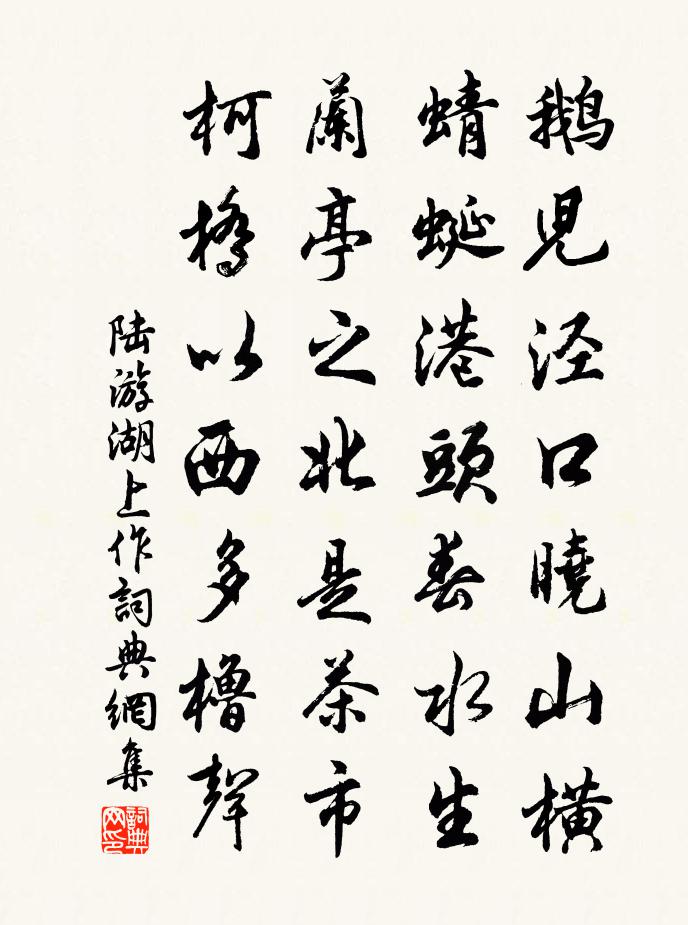 鵝児涇口曉山橫
蜻蜓港頭春水生
蘭亭之北是茶市
柯橋以西多櫓聲
陸游湖上作詞典網集
詞典网印